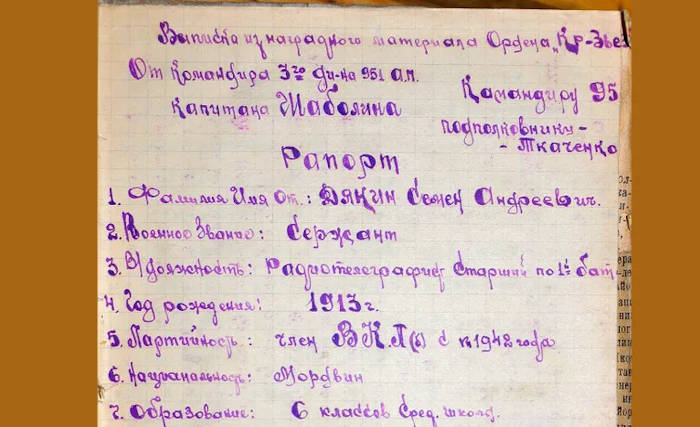 Выписка из наградного материала Ордена „Кр-Звез
От командира 3го ди-на 951 ап.
капитана Шаболина
Командиру 95
подполковнику-
- Ткаченко
Рапорт
1. Фамилия Имя От.: Дякин Семен Андреевич.
2. Военное Звание: Сержант
3. В/должность: Радиотелеграфист Старший по 1й бат
4. Год рождения: 1913 г.
5. Партийность: член ВКП(б) с 1942 года
6. Национальность: Мордвин
7. Образование: 6 классов сред. школ.